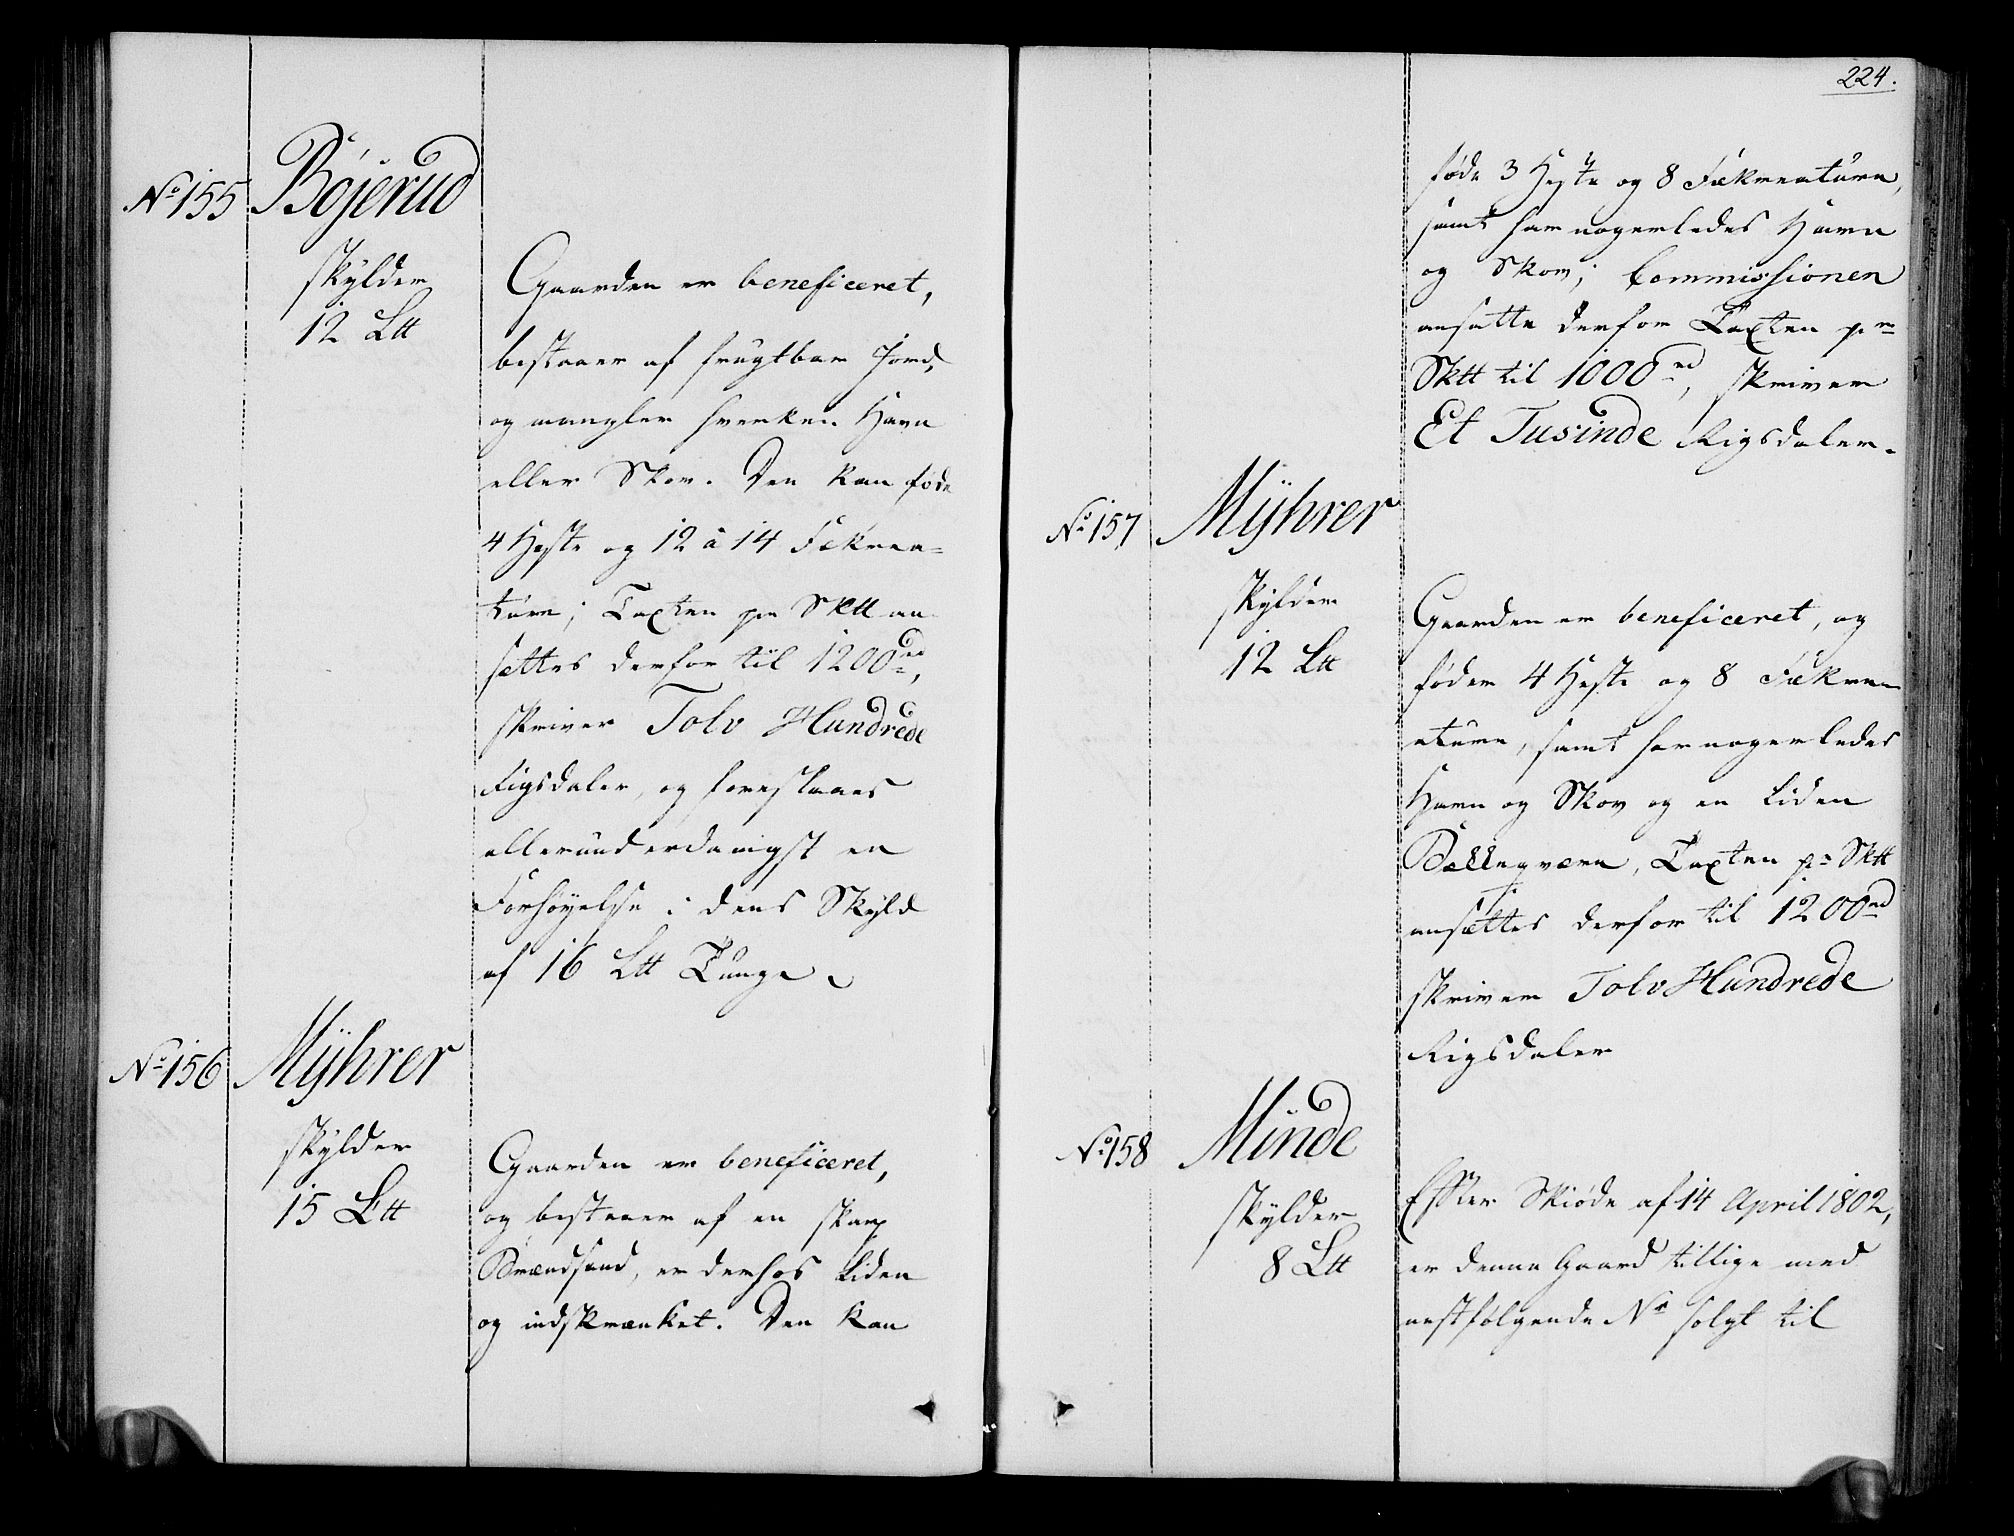 No 155
Böjerud
skylder
12 Ltt
Gaarden er beneficeret,
bestaaer af frugtbar Jord,
og mangler hverken Havn
eller Skov. Den kan føde
4 Heste og 12 à 14 Fækrea=
ture; Taxten pr Sktt an
settes derfor til 1200 rd,
skriver Tolv Hundrede
Rigsdaler, og foreslaaes
allerunderdanigst en
Forhøyelse i dens Skyld
af 16 Ltt Tunge.
No 156
Mÿhrer
skylder
15 Ltt
Gaarden er beneficeret,
og bestaaer af en skarp
Brændsand, er derhos liden
og indskrænket. Den kan
224.
føde 3 Heste og 8 Fækreature,
samt har nogerledes Havn
og Skov; Commissionen
ansatte derfor Taxten pr
Sktt til 1000 rd, skriver
Et Tusinde Rigsdaler.
No 157
Mÿhrer
skylder
12 Ltt
Gaarden er beneficeret, og
føder 4 Heste og 8 Fækre
ature, samt har nogerledes
Havn og Skov og en liden
Bækkeqværn, Taxten pr Sktt
ansættes derfor til 1200 rd
skriver Tolv Hundrede
Rigsdaler
No 158
Minde
skylder
8 Ltt
Efter Skiøde af 14 April 1802,
er denne Gaard tillige med
nestfølgende Nr solgt til